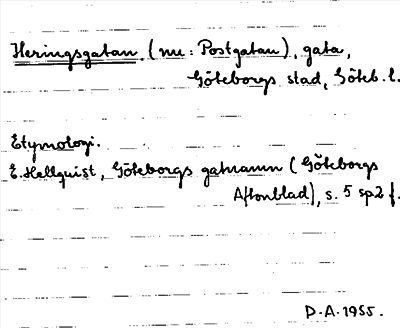 Heringsgatan. (nu: Postgatan), gata,
Göteborgs stad, Göteb. l.
Etymologi.
E. Hellquist, Göteborgs gatnamn (Göteborgs
Aftonblad), s. 5 sp 2 f.
D. A. 1955.